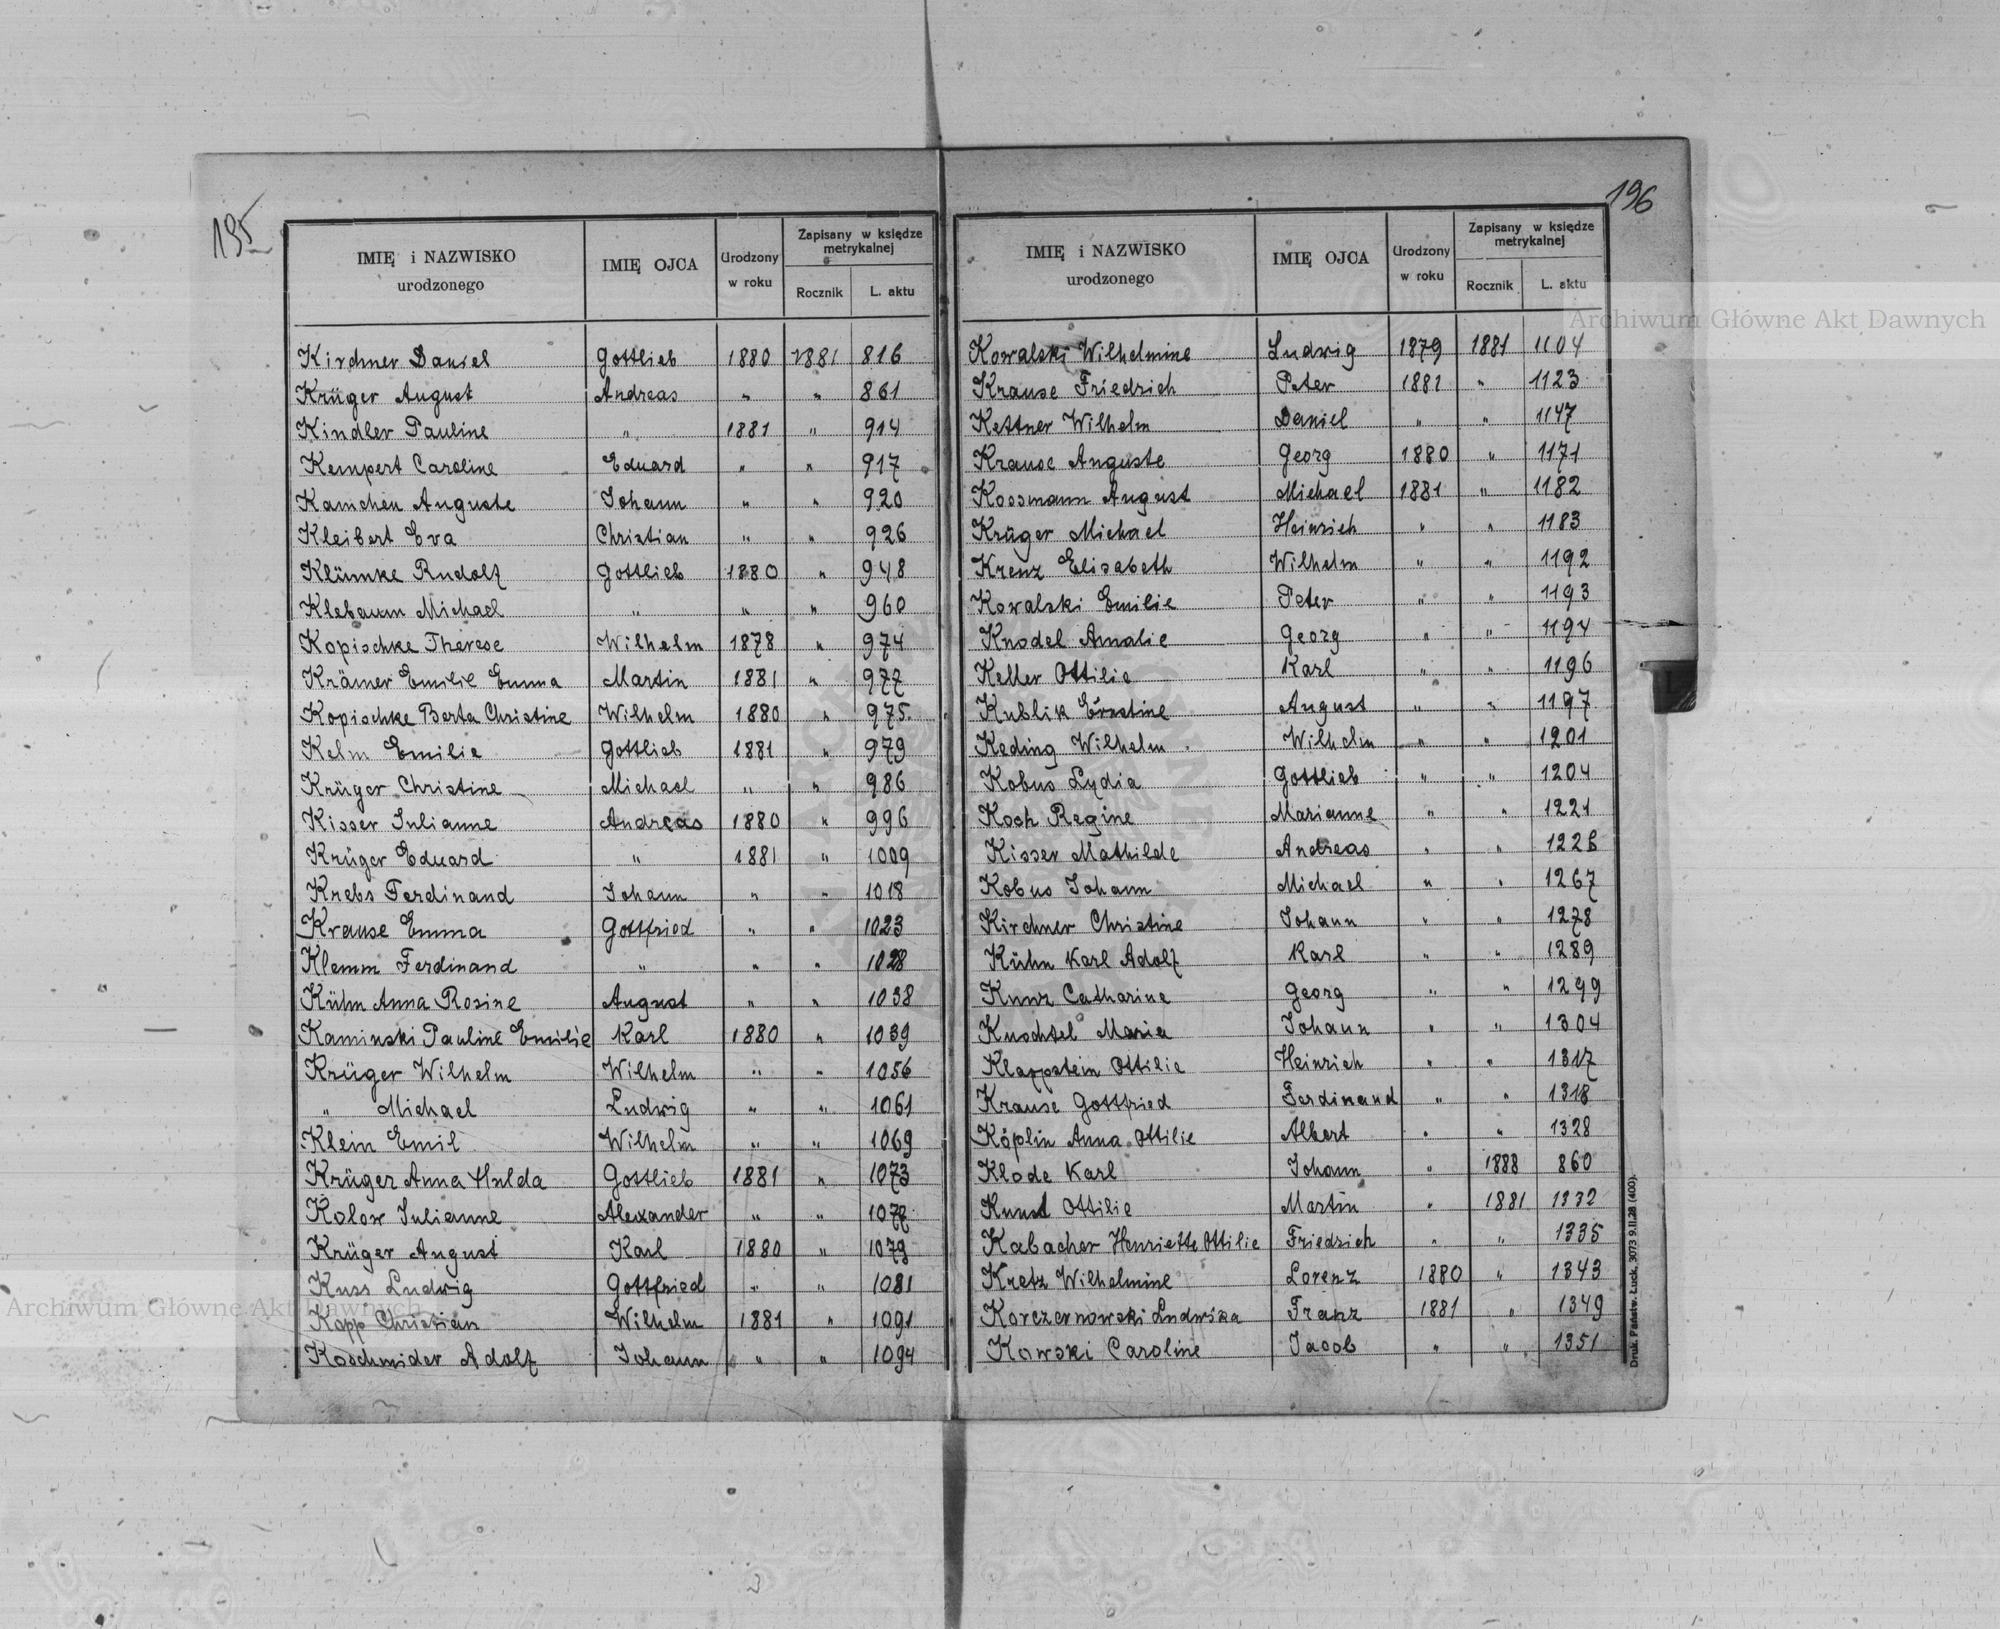 195
IMIĘ i NAZWISKO urodzonego | IMIĘ OJCA | Urodzony w roku | Zapisany w księdze metrykalnej
Rocznik | L. aktu
Kirchner Daniel | Gottlieb | 1880 | 1881 | 816
Krüger August | Andreas | " | " | 861
Kindler Pauline | " | 1881 | " | 914
Kempert Caroline | Eduard | " | " | 917
Kamchen Auguste | Johann | " | " | 920
Kleibert Eva | Christian | " | " | 926
Klümke Rudolf | Gottlieb | 1880 | " | 948
Klebaum Michael | " | " | " | 960
Kopischke Therese | Wilhelm | 1878 | " | 974
Krämer Emilie Emma | Martin | 1881 | " | 977
Kopischke Berta Christine | Wilhelm | 1880 | " | 975
Kelm Emilie | Gottlieb | 1881 | " | 979
Krüger Christine | Michael | " | " | 986
Kisser Julianne | Andreas | 1880 | " | 996
Krüger Eduard | " | 1881 | " | 1009
Krebs Ferdinand | Johann | " | " | 1018
Krause Emma | Gottfried | " | " | 1023
Klemm Ferdinand | " | " | " | 1028
Kühn Anna Rosine | August | " | " | 1038
Kaminski Pauline Emilie | Karl | 1880 | " | 1039
Krüger Wilhelm | Wilhelm | " | " | 1056
" Michael | Ludwig | " | " | 1061
Klein Emil | Wilhelm | " | " | 1069
Krüger Anna Hulda | Gottlieb | 1881 | " | 1073
Kolow Julianne | Alexander | " | " | 1077
Krüger August | Karl | 1880 | " | 1079
Kuss Ludwig | Gottfried | " | " | 1081
Kopp Christian | Wilhelm | 1881 | " | 1091
Koschmider Adolf | Johann | " | " | 1094
196
IMIĘ i NAZWISKO urodzonego | IMIĘ OJCA | Urodzony w roku | Zapisany w księdze metrykalnej
Rocznik | L. aktu
Kowalski Wilhelmine | Ludwig | 1879 | 1881 | 1104
Krause Friedrich | Peter | 1881 | " | 1123
Kettner Wilhelm | Daniel | " | " | 1147
Krause Auguste | Georg | 1880 | " | 1171
Kossmann August | Michael | 1881 | " | 1182
Krüger Michael | Heinrich | " | " | 1183
Krenz Elisabeth | Wilhelm | " | " | 1192
Kowalski Emilie | Peter | " | " | 1193
Knodel Amalie | Georg | " | " | 1194
Keller Ottilie | Karl | " | " | 1196
Kublik Erestine | August | " | " | 1197
Keding Wilhelm | Wilhelm | " | " | 1201
Kobus Lydia | Gottlieb | " | " | 1204
Koch Regine | Marianne | " | " | 1221
Kisser Mathilde | Andreas | " | " | 1226
Kobus Johann | Michael | " | " | 1267
Kirchner Christine | Johann | " | " | 1278
Kühn Karl Adolf | Karl | " | " | 1289
Kunz Catharine | Georg | " | " | 1299
Knochtel Maria | Johann | " | " | 1304
Klappstein Ottilie | Heinrich | " | " | 1317
Krause Gottfried | Ferdinand | " | " | 1318
Köplin Anna Ottilie | Albert | " | " | 1328
Klode Karl | Johann | " | 1888 | 860
Kunst Ottilie | Martin | " | 1881 | 1332
Kabacher Henriette Ottilie | Friedrich | " | " | 1335
Kretz Wilhelmine | Lorenz | 1880 | " | 1343
Korczernowski Ludwika | Franz | 1881 | " | 1349
Kowski Caroline | Jacob | " | " | 1351
Druk. Państw. Łuck, 3073 9.II.28 (400).
Archiwum Główne Akt Dawnych
Archiwum Główne Akt Dawnych